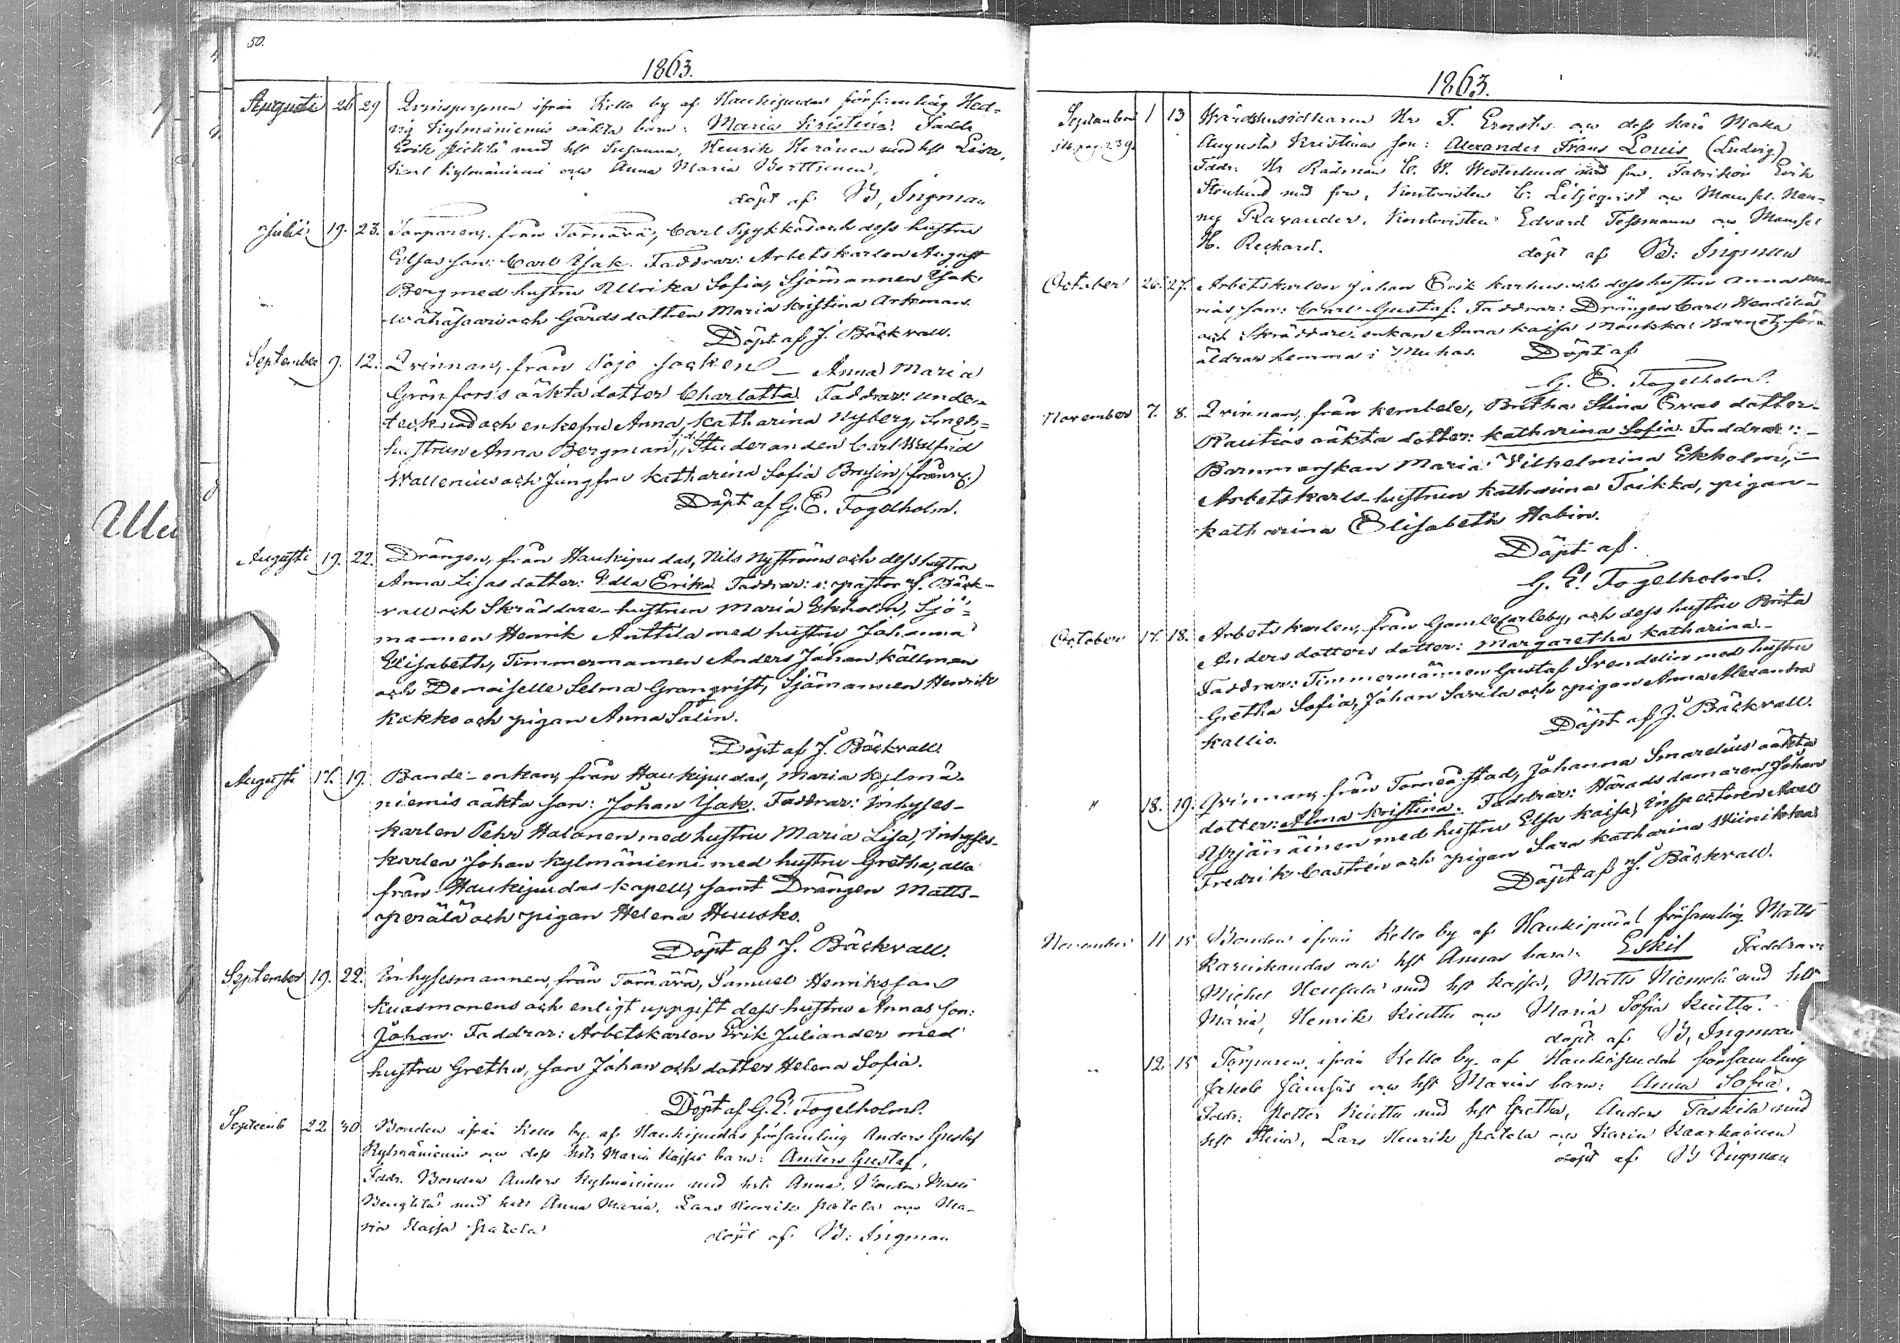 50.
1863.
Augusti 26 29 Qvinspersonen ifrån Kello by af Haukipudas församling Hed-
vig Kylmäniemis oäkta barn: Maria Kristina. Faddr.
Erik med hst Susanna, Henrik Keränen med hst Lisa,
Karl Kylmäniemi och Anna Maria
döpt af B, Ingman
Julii 19. 23. Torparen, från Carl Pyykkös och dess hustru
Elsas son: Carl Isak. Faddrar: Arbetskarlen August
Berg med hustru Ulrika Sofia, Sjömannen Isak
och Gårds dottern Maria Kristina Arkman.
Döpt af J. Bäckvall.
September 9. 12. Qvinnan, från socken Anna Maria
Grönfors's oäkta dotter Charlotta Faddrar: under-
tecknad och enkefru Anna Katharina Nyberg, Smeds-
hustrun Anna Bergman, Studeranden Carl Walfrid
Wallenius och Jungfru Katharina Sofia
Döpt af G. E. Fogelholm.
Augusti 19. 22. Drängen, från Haukipudas, Nils Nyströms och dess hustru
Anna Lisas dotter: Edla Erika Faddrar: v: pastor J. Bäck-
vall och Skräddare-hustrun Maria Ekholm, Sjö-
mannen Henrik Anttila med hustru Johanna
Elisabeth, Timmermannen Anders Johan Källman
och Demoiselle Selma Granqvist, Sjömannen Henrik
Kakko och pigan Anna Salin.
Döpt af J. Bäckvall.
Augusti 17. 19. Bonde-enkan, från Haukipudas, Maria Kylmä-
niemis oäkta son: Johan Isak. Faddrar: Inhyses-
karlen Pehr Halonen med hustru Maria Lisa, Inhyses-
karlen Johan Kylmäniemi med hustru Gretha, alla
från Haukipudas kapell, samt Drängen Matts
Perälä och pigan Helena Huusko.
Döpt af J. Bäckvall.
September 19. 22. Inhysesmannen, från Samuel Henriksson
Kuasmonens och enligt uppgift dess hustru Annas son:
Johan. Faddrar: Arbetskarlen Erik Juliander med
hustru Gretha, son Johan och dotter Helena Sofia.
Döpt af G. E. Fogelholm.
Septemb 22 30 Bonden ifrån Kello by af Haukipudas församling Anders Gustaf
Kylmäniemis och dess hstr Maria Kajsas barn: Anders Gustaf,
Faddr. Bonden Anders Kylmäniemi med hst Anna, Bonden Matts
med hst Anna Maria, Lars Henrik Patela och Ma-
ria Kajsa Patela
döpt af B: Ingman
1863.
September 1 13 Wärdshusidkaren Hr F. Ernsts och dess kära Maka
Augusta Kristinas son: Alexander Frans Louis (Ludvig)
Faddr: Hr Rådman C. W. Westerlund med fru, Fabrikör Erik
Stenlund med fru, Kontoristen C. Liljeqvist och Mamsel Nan-
ny Ravander, Kontoristen Edvard och Mamsel
H. Reckard. döpt af B: Ingman
October 26. 27. Arbetskarlen Johan Erik Karhus och dess hustru Anna
son: Carl Gustaf. Faddrar: Drängen Carl
och Skräddare-enkan Anna Kajsa Barnets för-
äldrar hemma i Muhos. Döpt af
G. E. Fogelholm.
November 7. 8. Qvinnan, från Kembele, Britha Stina Ersdotter
Rautios oäkta dotter: Katharina Sofia. Faddrar:
Barnmorskan Maria Wilhelmina Ekholm,
Arbetskarls-hustrun Katharina Taikka, pigan
Katharina Elisabeth Habin.
Döpt af.
G. E. Fogelholm.
October 17. 18. Arbetskarlen, från Gamlecarleby, och dess hustru Brita
Andersdotters dotter: Margaretha Katharina.
Faddrar: Timmermannen Gustaf Svendelin med hustru
Gretha Sofia, Johan Savela och pigan Anna Alexandra
Kallio. Döpt af J. Bäckvall.
" 18. 19. Qvinnan, från Torneå stad, Johanna Smarelius' oäkta
dotter: Alma Kristina. Faddrar: Häradsdomaren Johan
Yrjänäinen med hustru Elsa Kajsa, Inspectoren Axel
Fredrik Castrén och pigan Sara Katharina Wiinikka
Döpt af J. Bäckvall.
November 11 15 Bonden ifrån Kello by af Haukipudas församling Matts
och hst Annas barn: Eskil Faddrar
Michel med hst Kajsa, Matts Niemelä med hst
Maria, Henrik Kiuttu och Maria Sofia Kiuttu.
döpt af B, Ingman
" 12 15 Torparen, ifrån Kello by af Haukipudas församling
Jakob och hst Marias barn: Anna Sofia,
Faddr: Petter Kiuttu med hst Gretha, Anders Taskila med
hst Stina, Lars Henrik Patela och Karin
döpt af B Ingman